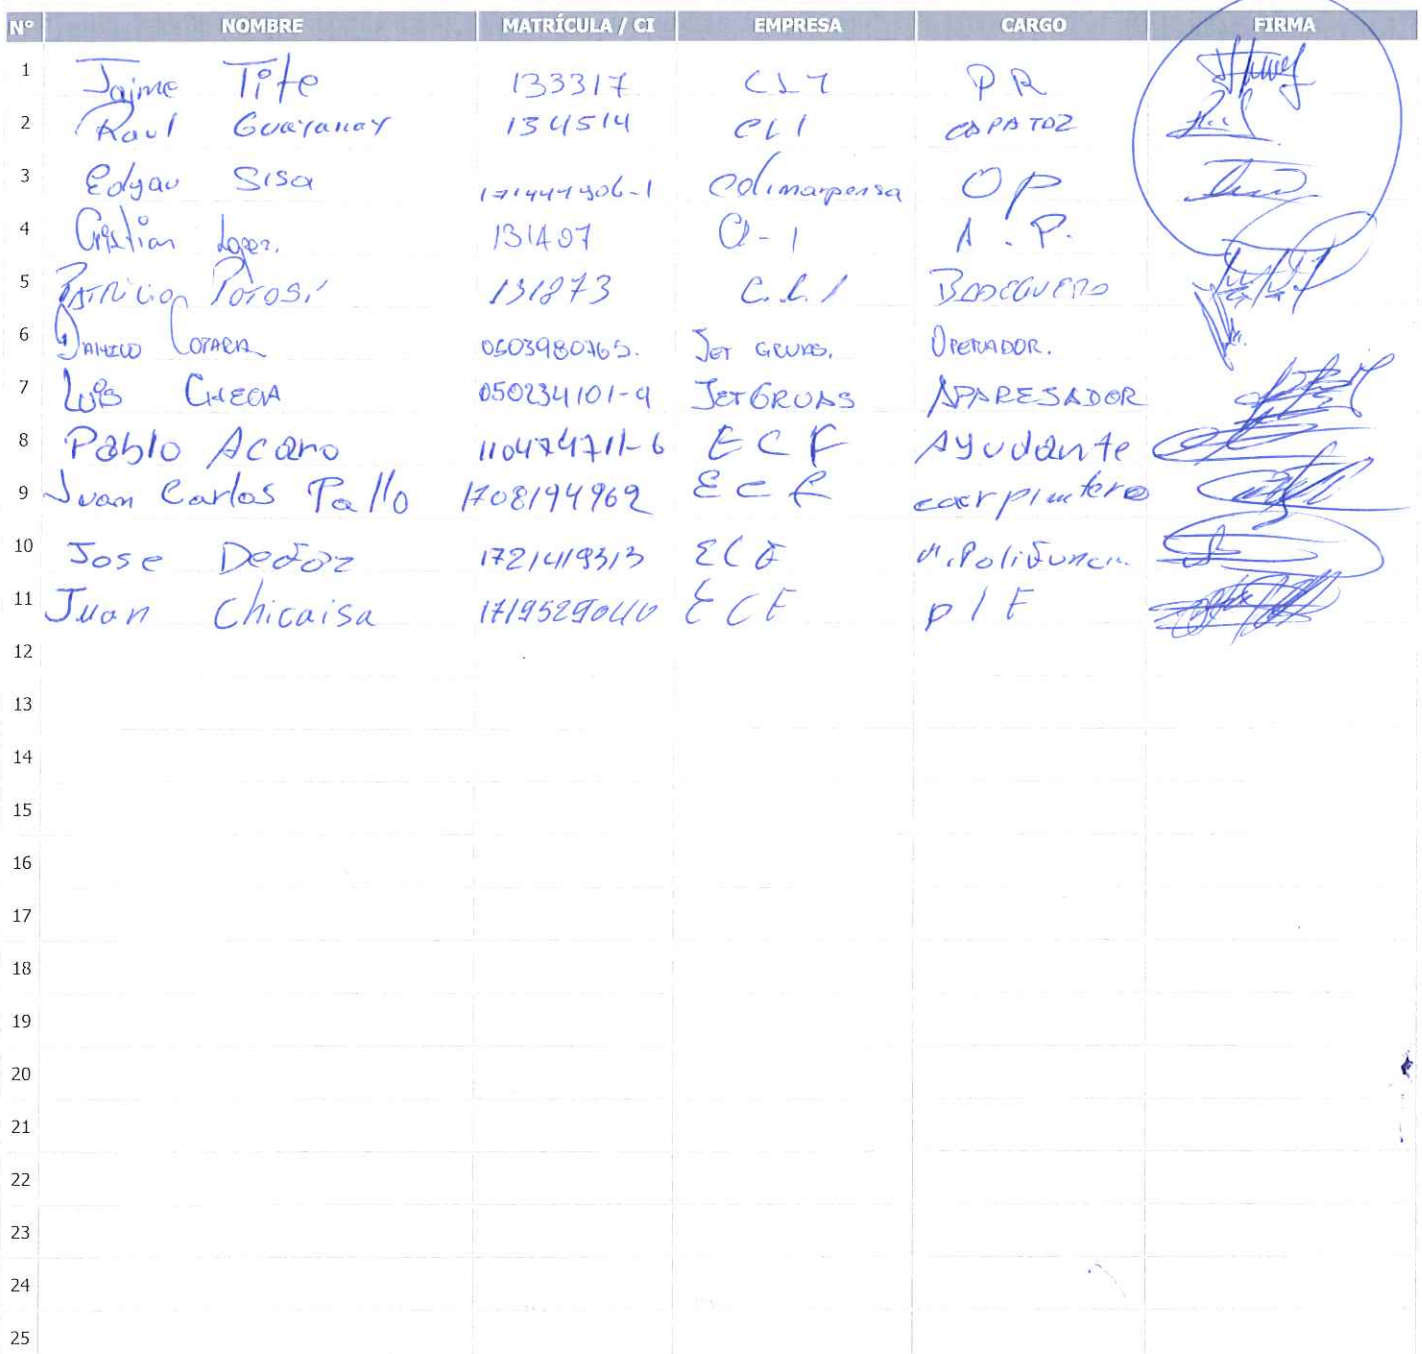 Nº NOMBRE MATRÍCULA / CI EMPRESA CARGO FIRMA
1 Jaime Tite 133317 CL1 PR
2 Raul Guayanay 134514 CL1 CAPATOZ
3 Edgar Sisa 171444906-1 Edimarpensa OP
4 Cristian Lopez. 131407 Cl-1 A.P.
5 Patricio Potosí 131873 C.L.1 BODEGUERO
6 DANILO 0503980765. JET GRUAS. OPERADOR.
7 Luis CHECA 050234101-9 JET GRUAS APARESADOR
8 Pablo Acaro 110474711-6 ECF Ayudante
9 Juan Carlos Pallo 1708194962 ECF carpintero
10 Jose 1721419313 ECF
11 Juan Chicaisa ECF P/F
12
13
14
15
16
17
18
19
20
21
22
23
24
25